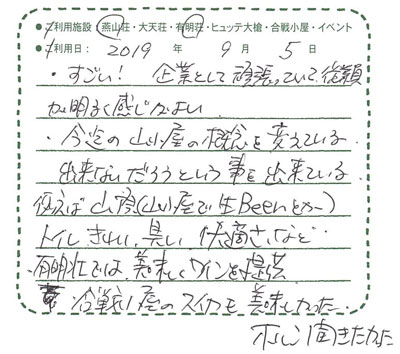 ●ご利用施設：燕山荘・大天荘・有明荘・ヒュッテ大槍・合戦小屋・イベント
●ご利用日：2019年9月5日
・すごい！ 企業として頑張っていて、従業員
が明るく感じがよい
・今迄の山小屋の概念を変えている
出来ないだろうという事を出来ている
例えば山 (山小屋で生Beerとか)
トイレきれい、臭い、快適さ、など…
・有明荘では、美味しくワインを提供
合戦小屋のスイカも美味しかった.